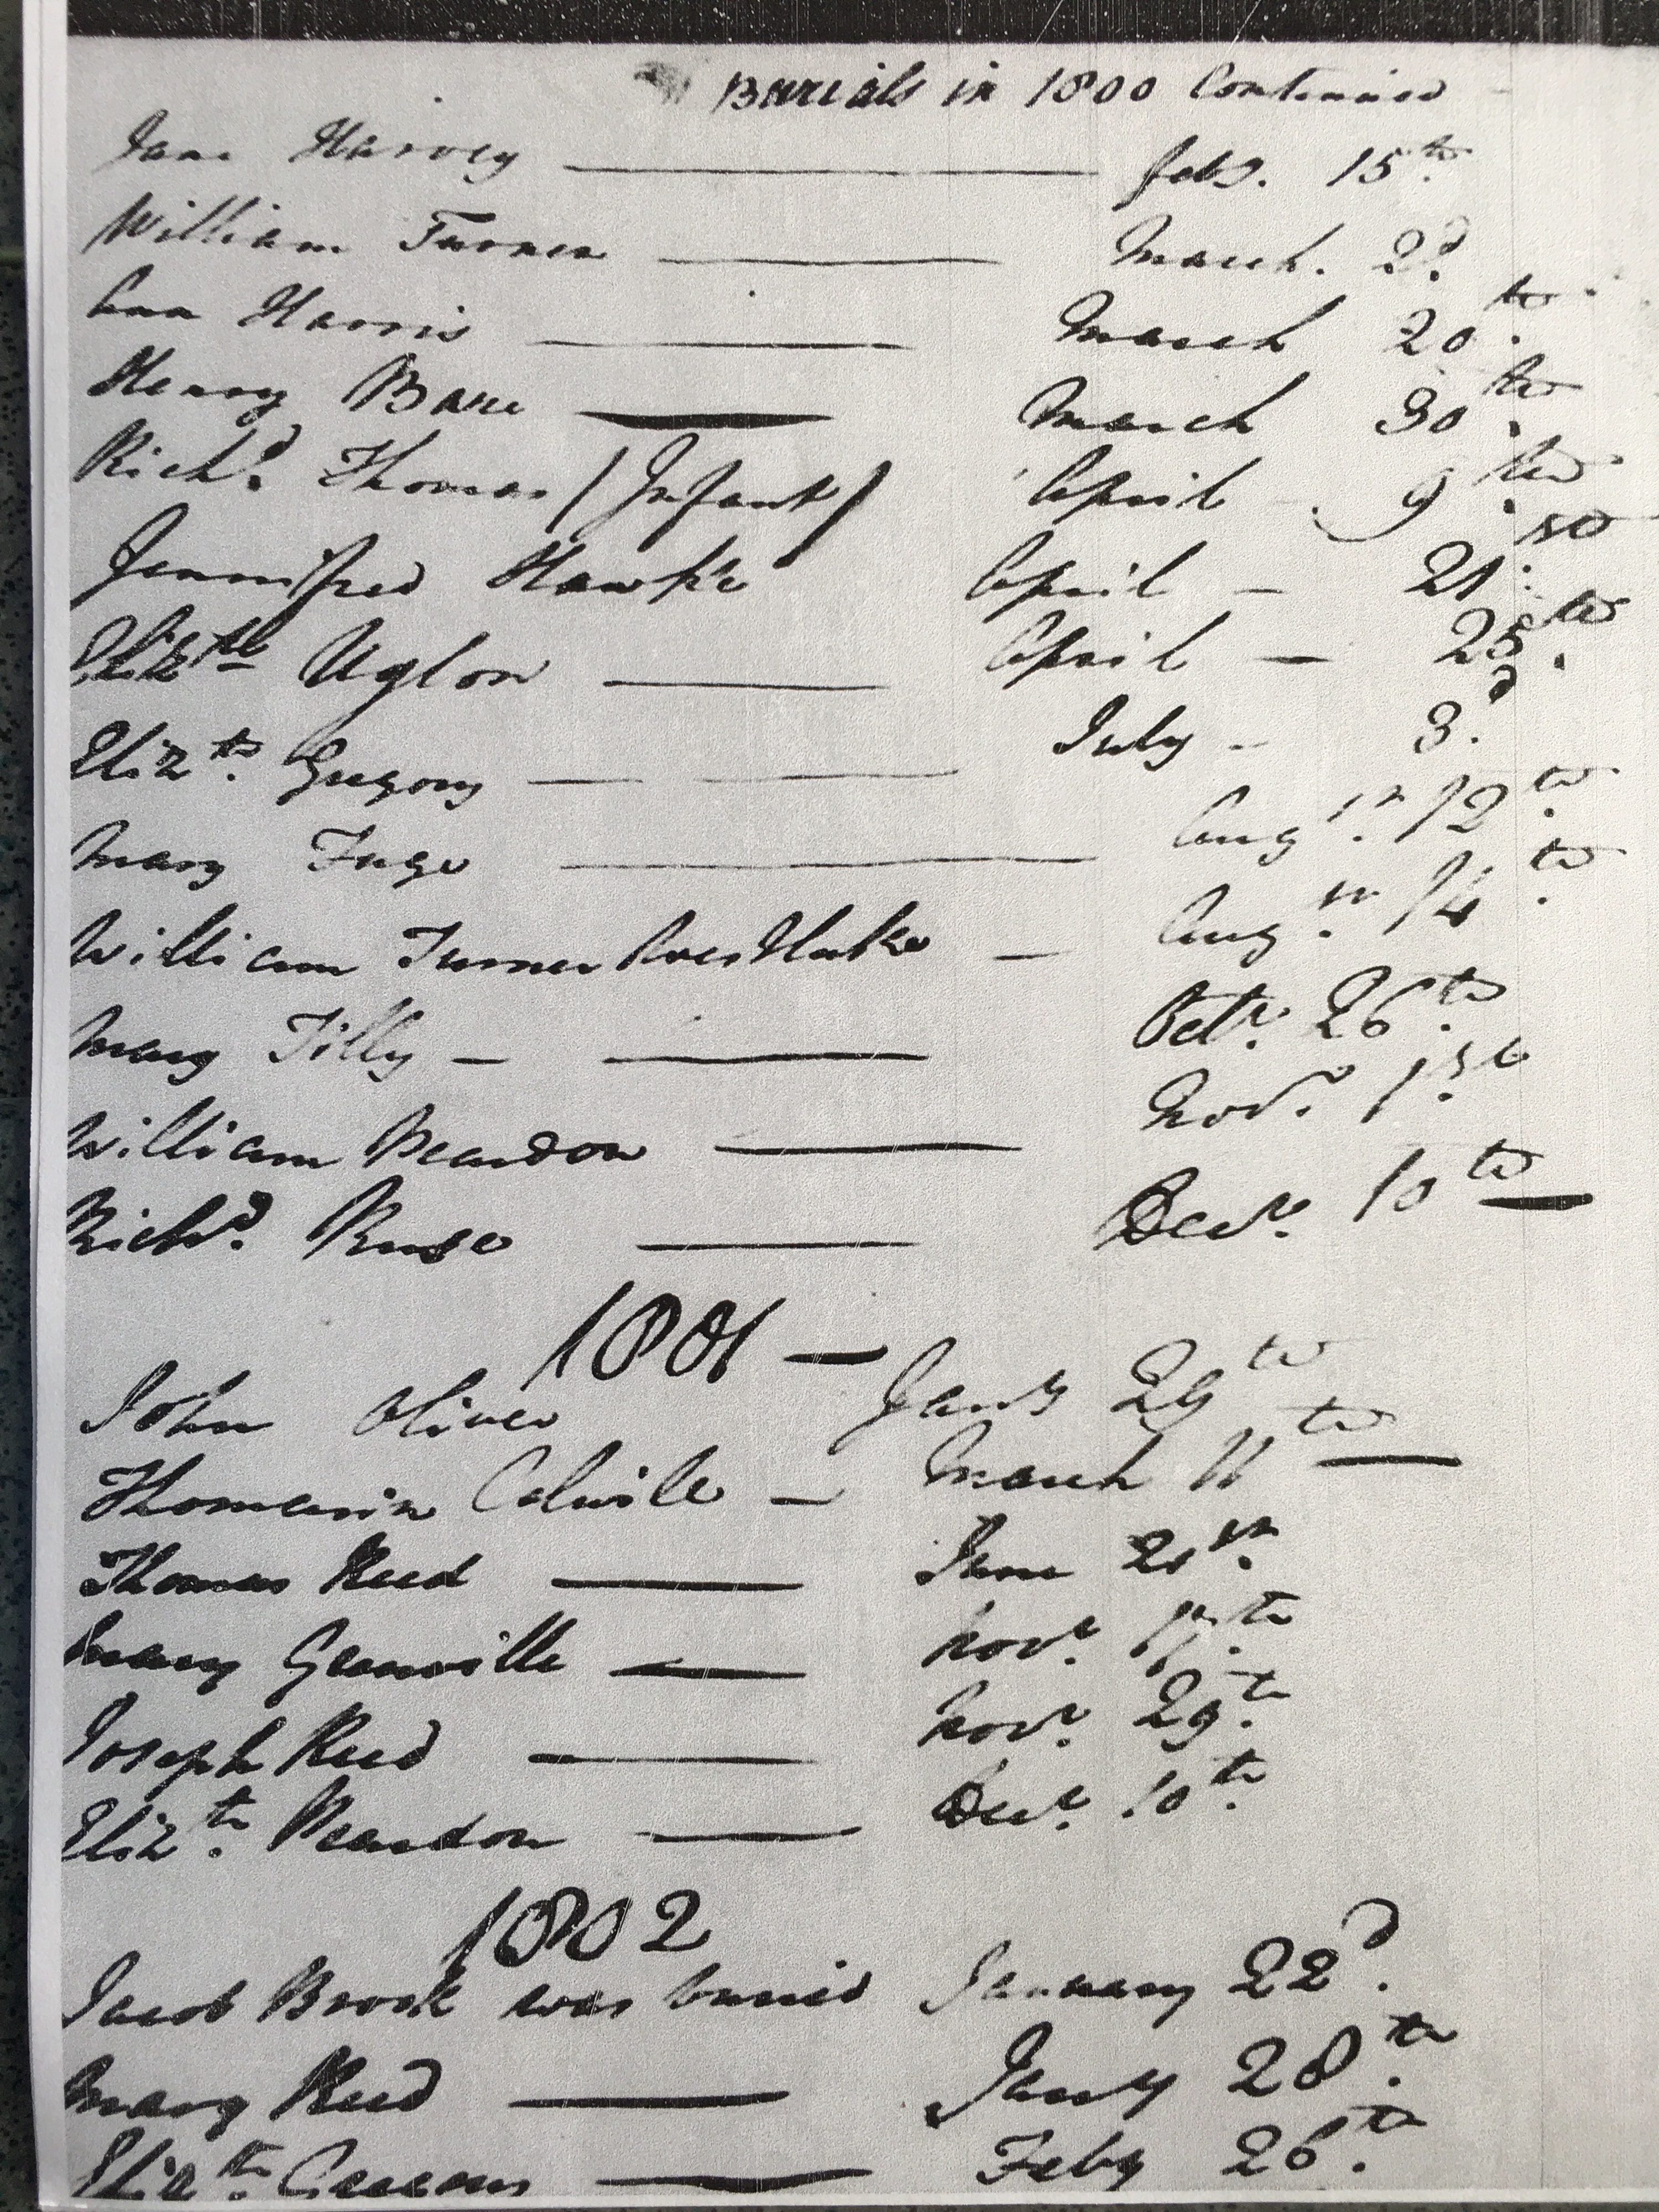 Burials in 1800 Continued
Jane Harvey — feby. 15th
William Turner — March. 2d
Ann Harris — March 20th
Henry Bare — March 30th
Richd. Thomas (Infant) April - 9th
Jennifred Hawke April - 21st
Elizth Uglow — April - 25th
Elizth. Gregory — July - 3d
Mary Fuge — Augst. 12th
William Turner — Augst. 14th
Mary Tilly — Octr. 26th
William Reardon — Novr. 1st
Richd. Ruse — Decr. 10th
1801 —
John Oliver Jany 29th
Thomasin Colwile — March 11th
Thomas Reed — June 21st
Mary Granville — Novr. 17th
Joseph Reed — Novr. 29th
Elizth. Reardon — Decr. 10th
1802
Jacob Brook was buried January 22d.
Mary Reed — Jany 28th
Elizth. — Feby 26th